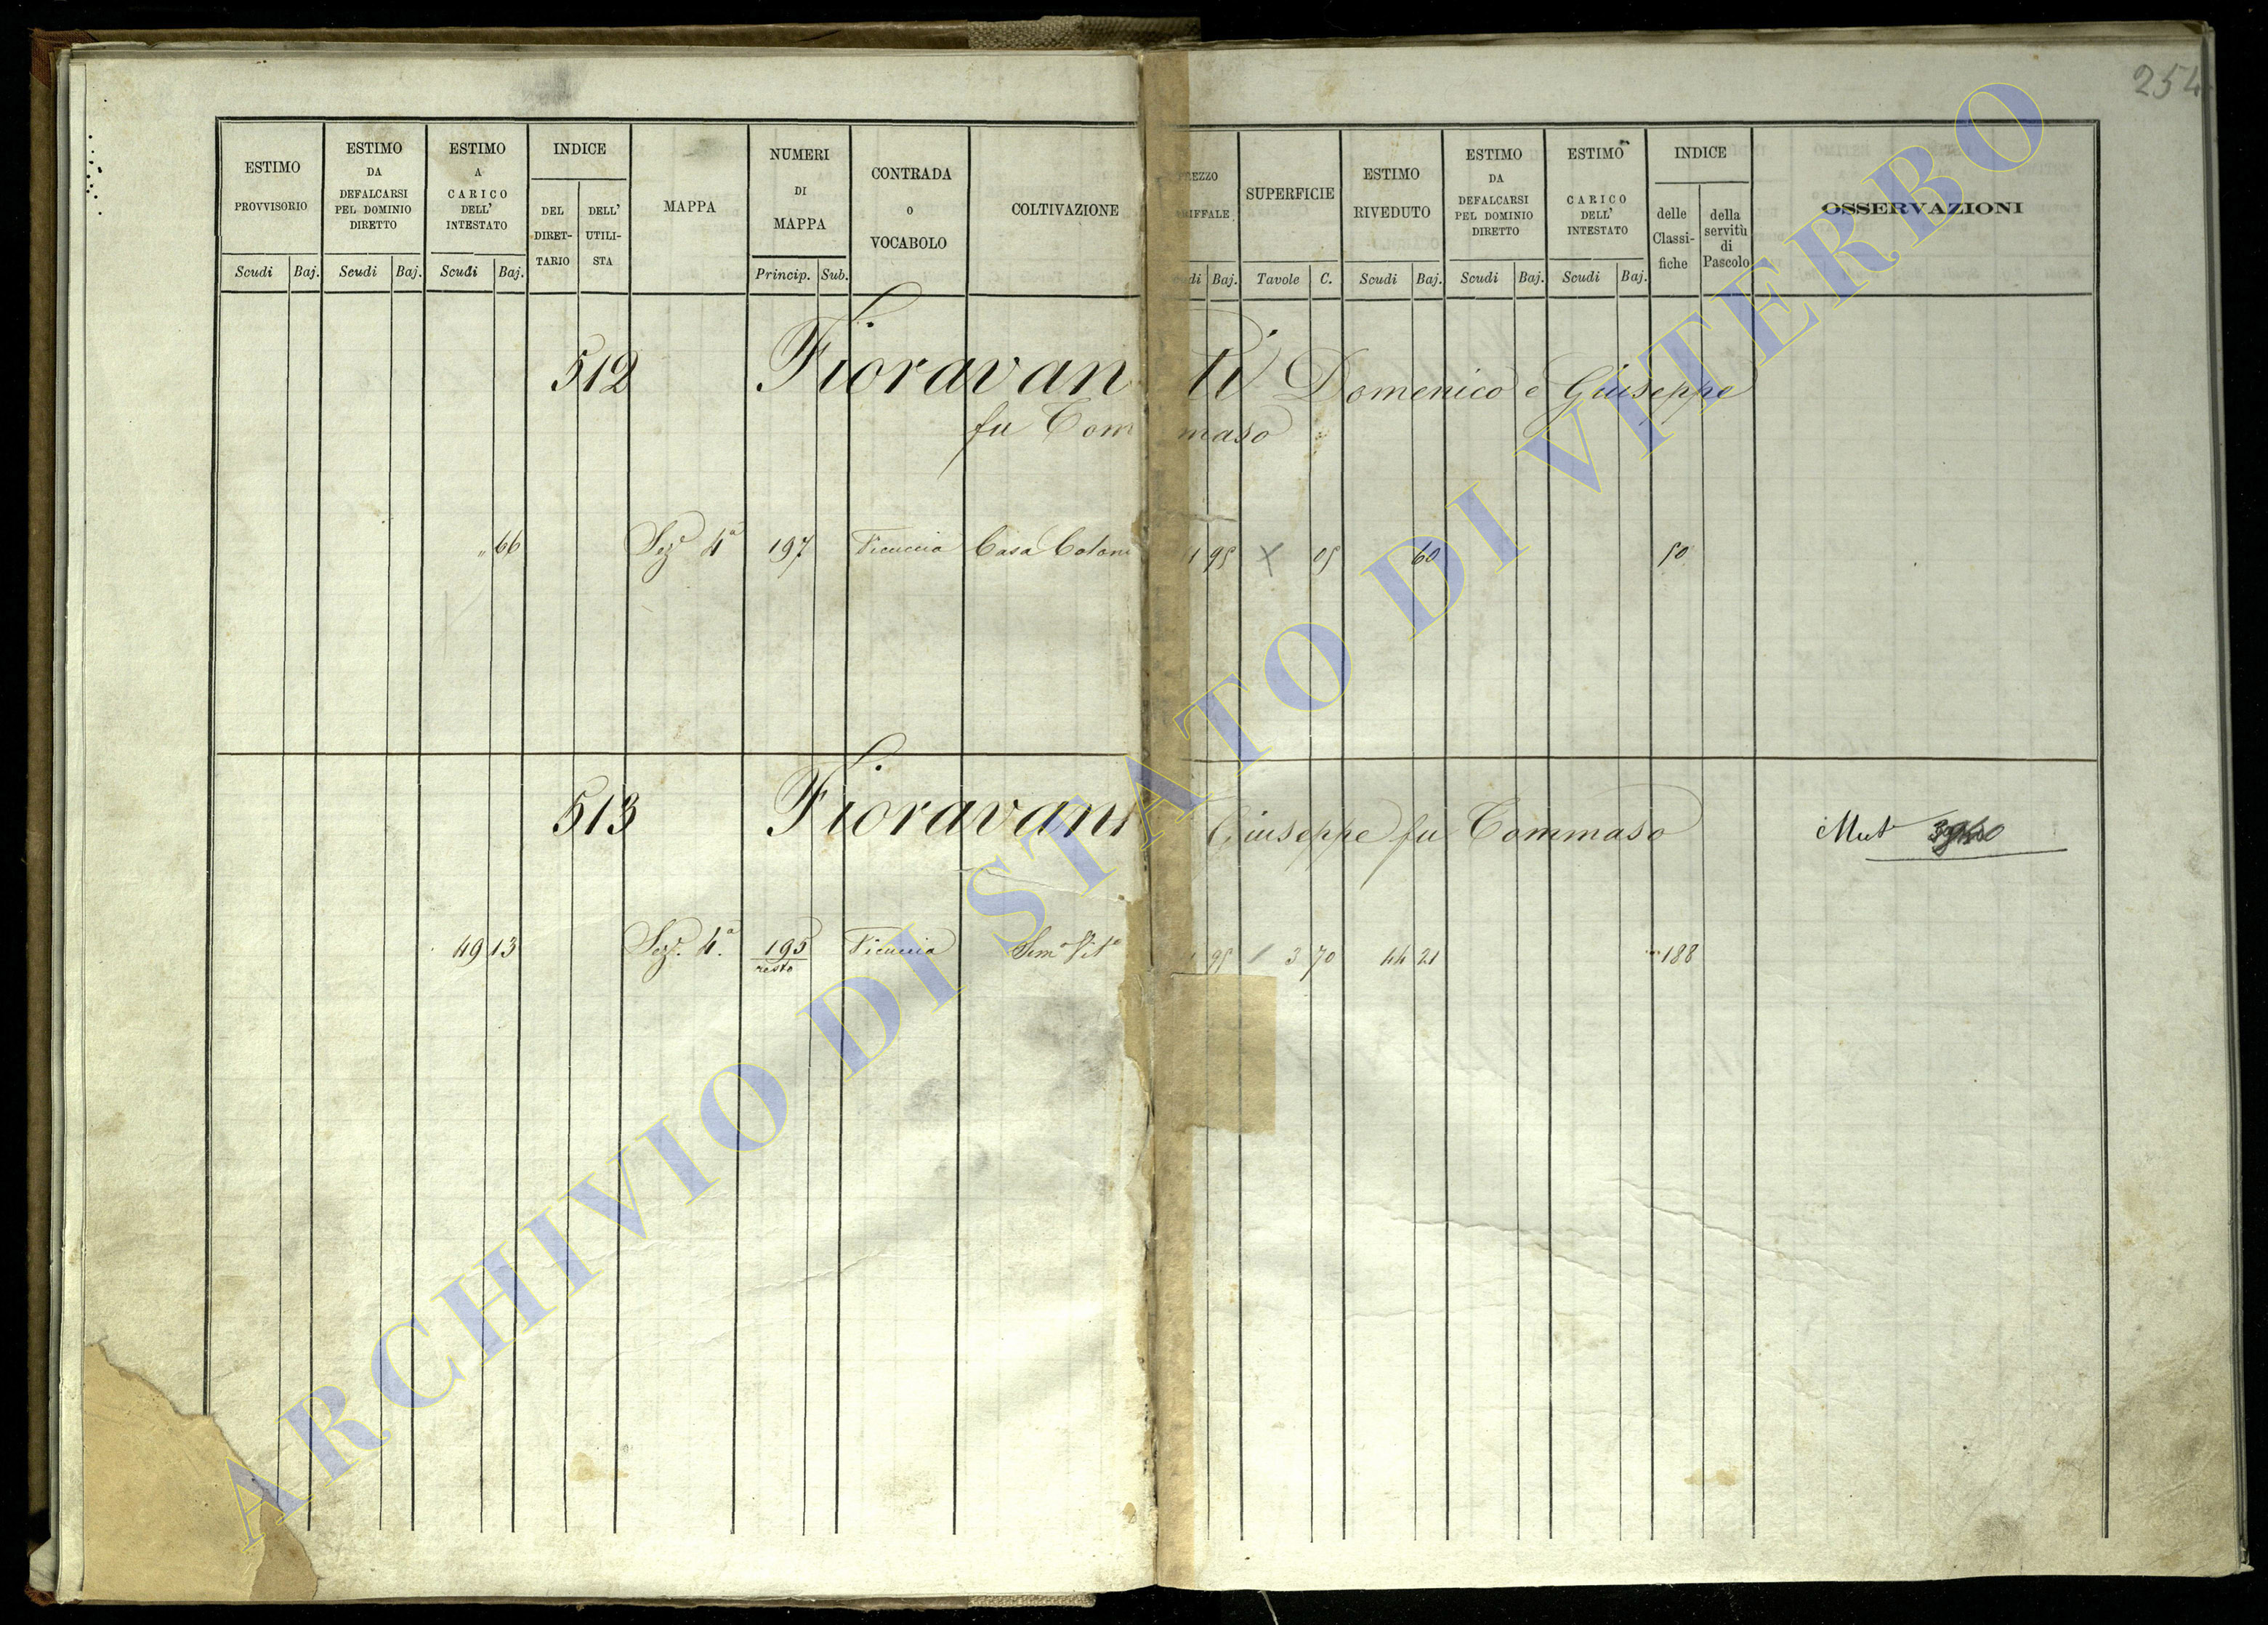 254
ESTIMO PROVVISORIO Scudi Baj.
ESTIMO DA DEFALCARSI PEL DOMINIO DIRETTO Scudi Baj.
ESTIMO A CARICO DELL' INTESTATO Scudi Baj.
INDICE DEL DIRET-TARIO DELL' UTILI-STA
MAPPA
NUMERI DI MAPPA Princip. Sub.
CONTRADA O VOCABOLO
COLTIVAZIONE
Baj.
SUPERFICIE Tavole C.
ESTIMO RIVEDUTO Scudi Baj.
ESTIMO DA DEFALCARSI PEL DOMINIO DIRETTO Scudi Baj.
ESTIMO A CARICO DELL' INTESTATO Scudi Baj.
INDICE delle Classi-fiche della servitù di Pascolo
OSSERVAZIONI
512 Fioravanti Domenico e Giuseppe
fu Tommaso
" 66 Sez.e 4a 197 Ficuccia Casa Coloni 1 95 05 60 50
513 Fioravant Giuseppe fu Tommaso Mut
49 13 Sez.e 4a 195 resto Ficuccia Sem.o Vit.o 95 3 70 44 21 188
ARCHIVIO DI STATO DI VITERBO